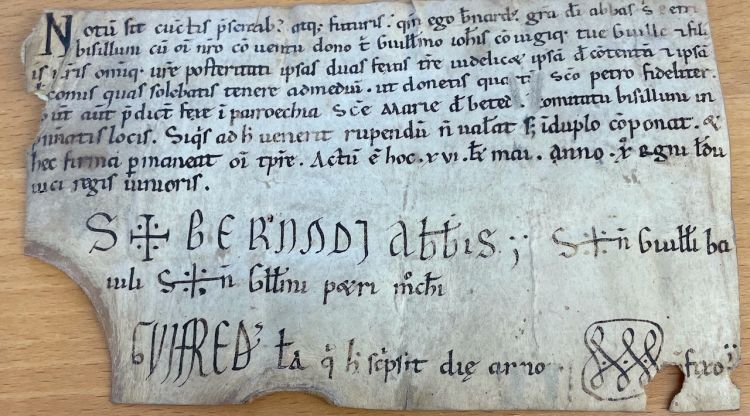 Notū sit cūctis p̄sentab; atq; futuris. qm̄ ego bn̄ard; gr̄a dī abbas S petri
bisilluni cū oī nr̄o cōventu dono t̄ Guillm̄o ioh̄is cōiugiq; tuę Guill̄e & fili
is ur̄is om̄iq; ur̄e posteritati ipsas duas feixas tr̄e videlic& ipsā d̄ cōtenta & ipsā
comis quas solebatis tenere ad mediū. ut donetis quartū Sc̄o petro fideliter.
Sūt aut̄ p̄dict̄ feixe ī parroechia Sc̄e Marie d̄ beteč. comitatu bisilluni in
p̄nn̄atis locis. Siq̄s ad h̄ venerit rūpendū n̄ valeat s; ī duplo cōponat. &
hec firma p̄maneat oī tp̄re. Actū ē hoc. xvi. kł mai. Anno. x. regni Lodu
uici regis iunioris.
S✠ BERNADI abb̄is; S✠n̄ Guill̄i ba
iuli S✠n̄ Gll̄mi pœri mōchi
GUIFRED; l̄a q̄ h̄ sc̄psit dię anno p̄fixo